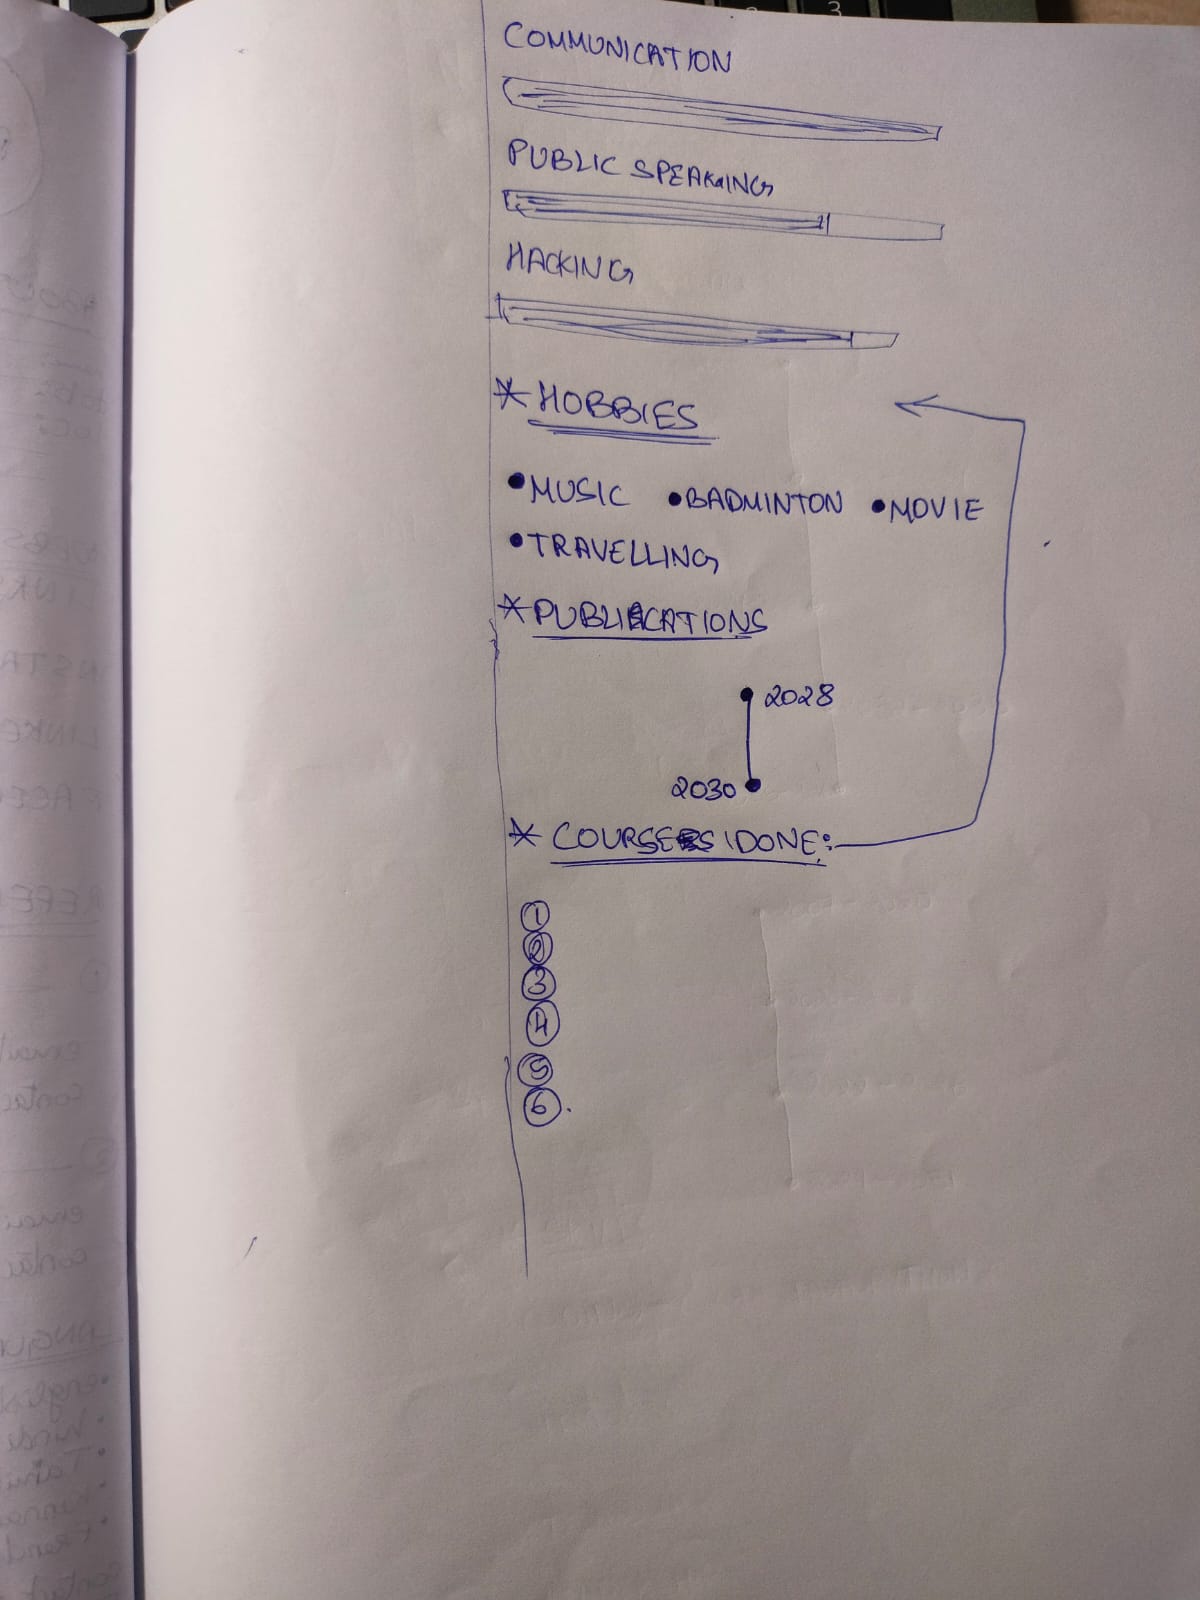 COMMUNICATION
PUBLIC SPEAKING
HACKING
* HOBBIES
• MUSIC • BADMINTON • MOVIE
• TRAVELLING
* PUBLICATIONS
2028
2030
* COURSES DONE:
1
2
3
4
5
6.